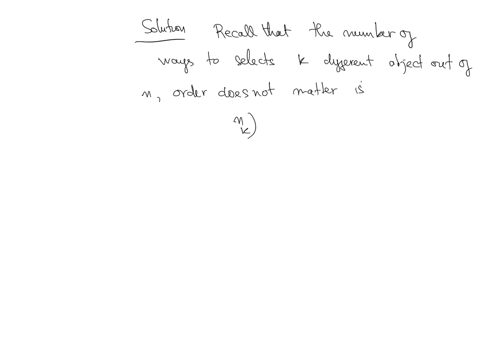 Solution Recall that the number of
ways to selects k different object out of
n, order does not matter is
n
k)